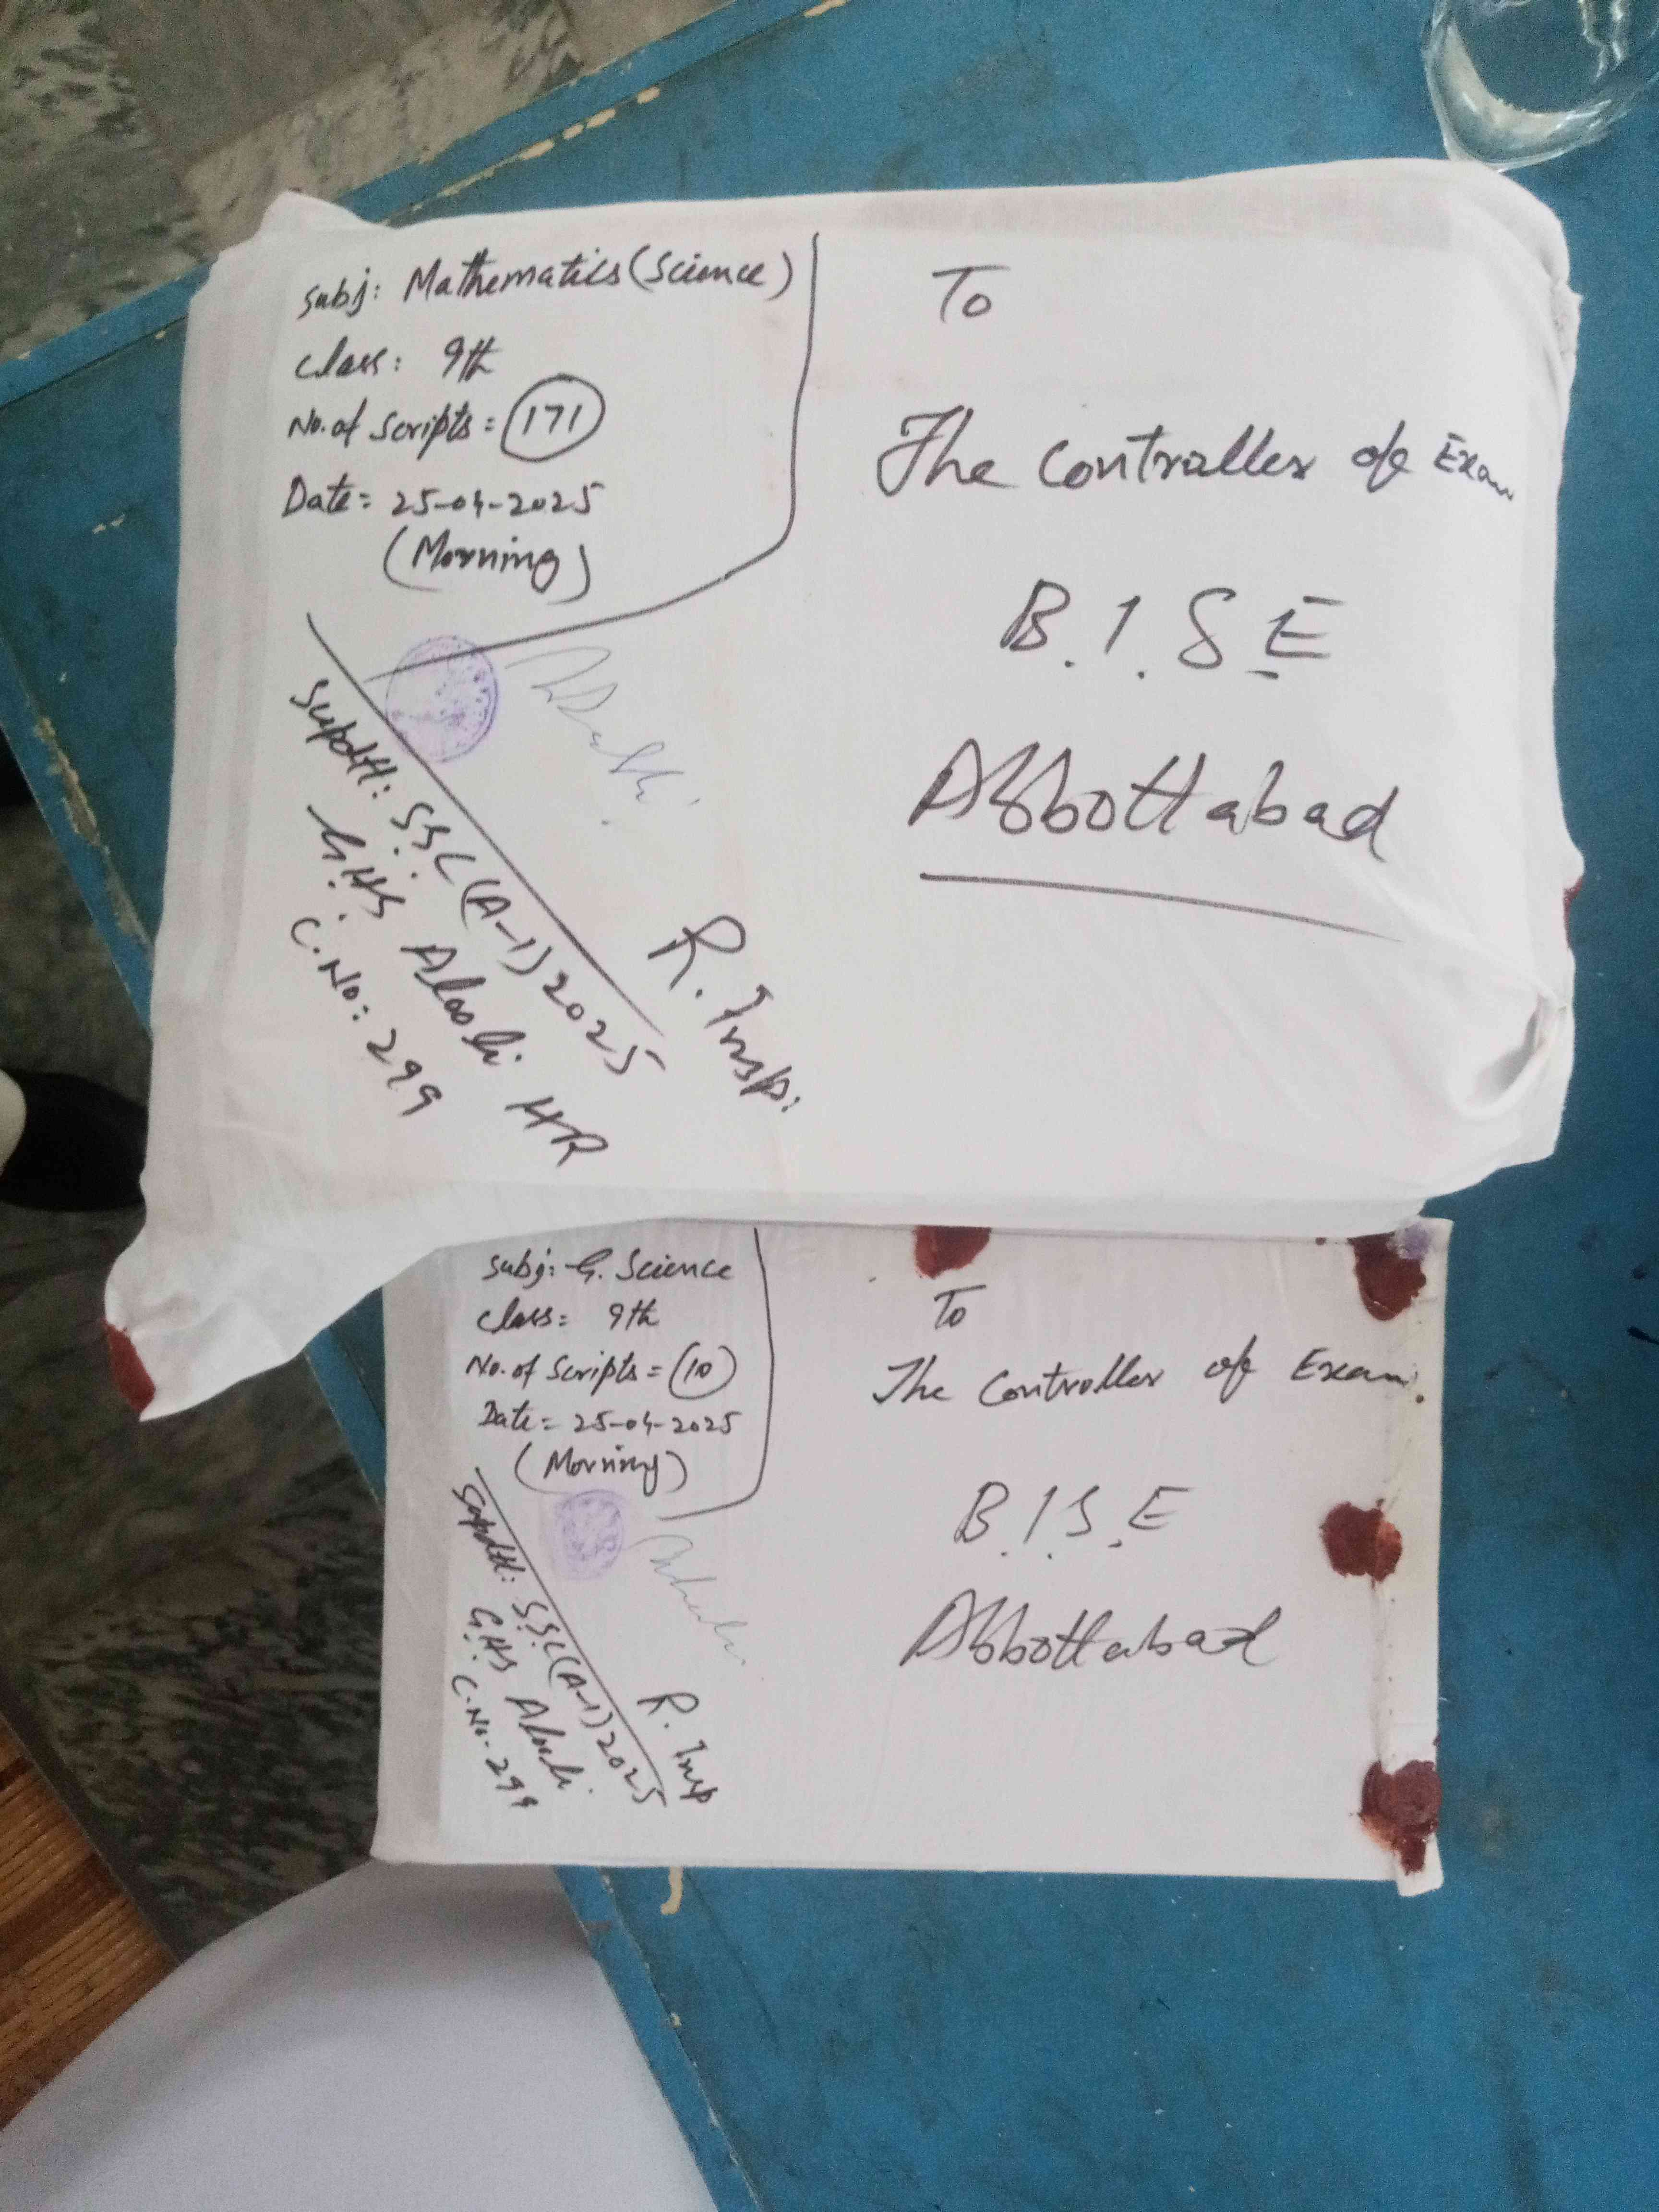 Subj: Mathematics (Science)
Class: 9th
No. of Scripts = 171
Date = 25-04-2025
(Morning)
To
The Controller of Exam
B.I.S.E
Abbottabad
Supdtt: SSC(A-1) 2025
G.HS Alooli HR
C.No: 299
R. Insp:
Subj: G. Science
Class: 9th
No. of Scripts = 10
Date = 25-04-2025
(Morning)
To
The Controller of Exam.
B.I.S.E
Abbottabad
Supdtt: SSC(A-1) 2025
G.HS Alooli
C.No - 299
R. Insp